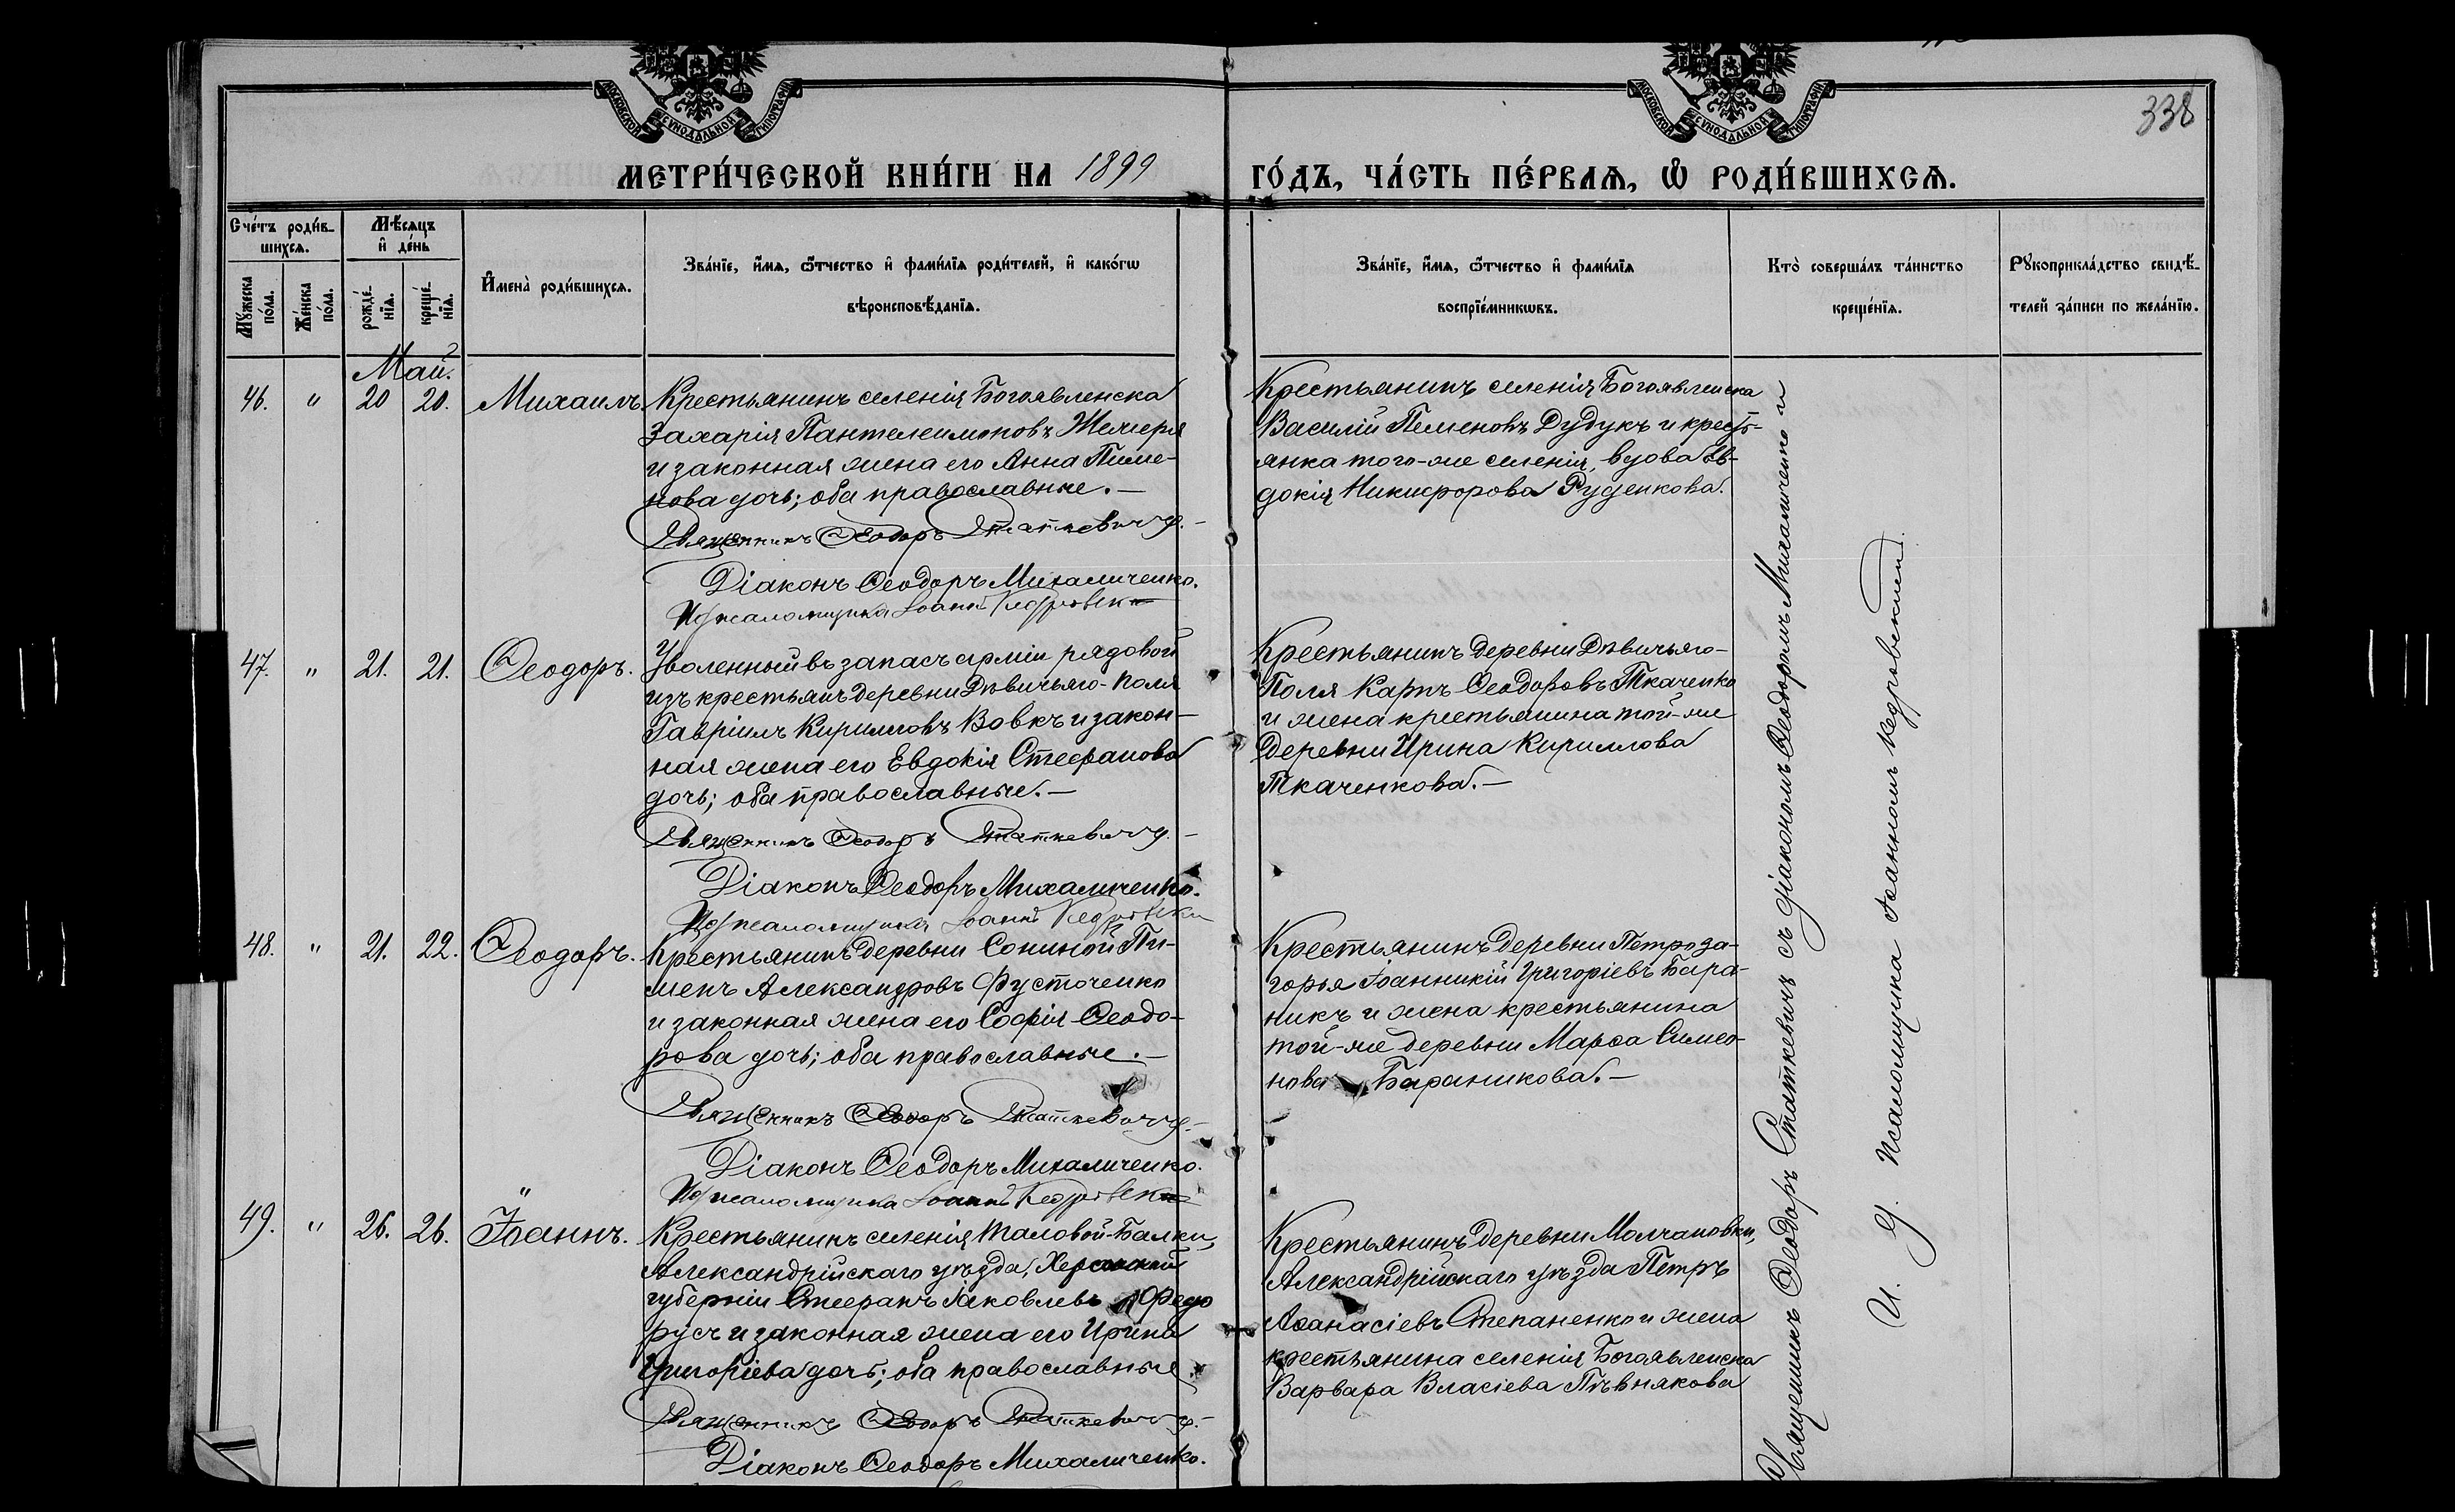 МОСКОВСКОЙ СУНОДАЛЬНОЙ ТИПОГРАФІИ
МОСКОВСКОЙ СУНОДАЛЬНОЙ ТИПОГРАФІИ
338
МЕТРИ́ЧЕСКОЙ КНИ́ГИ НА 1899 ГО́ДЪ, ЧА́СТЬ ПЕ́РВАѦ, Ѡ РОДИ́ВШИХСѦ.
Сче́тъ роди́в-
шихсѧ.
Мꙋжеска по́ла.
Же́нска по́ла.
Мѣсѧцъ
и҆ де́нь
рожде́-
нїѧ.
креще́-
нїѧ.
И҆мена̀ роди́вшихсѧ.
Зва́нїе, и҆́мѧ, ѻ҆́тчество и҆ фами́лїѧ роди́телей, и҆ како́гѡ
вѣроисповѣ́данїѧ.
Зва́нїе, и҆́мѧ, ѻ҆́тчество и҆ фами́лїѧ
воспрїе́мникѡвъ.
Кто̀ соверша́лъ та́инство
креще́нїѧ.
Рꙋкоприкла́дство свидѣ́-
телей за́писи по жела́нію.
Май.
46. " 20 20. Михаилъ.
Крестьянинъ селенія Богоявленска
Захарія Пантелеимоновъ Жемеря
и законная жена его Анна Пиме-
нова дочь; оба православные.—
Священникъ Ѳеодоръ Статкевичъ.—
Діаконъ Ѳеодоръ Михаличенко.
И. д. псаломщика Іоаннъ Кедровскій
Крестьянинъ селенія Богоявленска
Василій Пименовъ Дудукъ и кресть-
янка того-же селенія, вдова Ев-
докія Никифорова Руденкова.
47. " 21. 21. Ѳеодоръ.
Уволенный въ запасъ арміи рядовой
изъ крестьянъ деревни Дѣвичьяго-Поля
Гавріилъ Кирилловъ Вовкъ и закон-
ная жена его Евдокія Стефанова
дочь; оба православные.—
Священникъ Ѳеодоръ Статкевичъ.—
Діаконъ Ѳеодоръ Михаличенко.
И. д. псаломщика Іоаннъ Кедровскій
Крестьянинъ деревни Дѣвичьяго-
Поля Карпъ Ѳеодоровъ Ткаченко
и жена крестьянина той-же
деревни Ирина Кириллова
Ткаченкова.—
48. " 21. 22. Ѳеодоръ.
Крестьянинъ деревни Сониной Пи-
менъ Александровъ Фусточенко
и законная жена его Софія Ѳеодо-
рова дочь; оба православные.—
Священникъ Ѳеодоръ Статкевичъ.—
Діаконъ Ѳеодоръ Михаличенко.
И. д. псаломщика Іоаннъ Кедровскій
Крестьянинъ деревни Петроза-
горья Іоанникій Григоріевъ Бара-
никъ и жена крестьянина
той-же деревни Марѳа Симео-
нова Бараникова.—
49. " 26. 26. Іоаннъ.
Крестьянинъ селенія Таловой-Балки,
Александрійскаго уѣзда, Херсонской
губерніи Стефанъ Іаковлевъ Федо
русъ и законная жена его Ирина
Григоріева дочь; оба православные.
Священникъ Ѳеодоръ Статкевичъ.—
Діаконъ Ѳеодоръ Михаличенко.
Крестьянинъ деревни Молчановки,
Александрійскаго уѣзда Петръ
Аѳанасіевъ Степаненко и жена
крестьянина селенія Богоявленска
Варвара Власіева Пѣвнякова
Священникъ Ѳеодоръ Статкевичъ съ діакономъ Ѳеодоромъ Михаличенко и
И. д. псаломщика Іоанномъ Кедровскимъ.